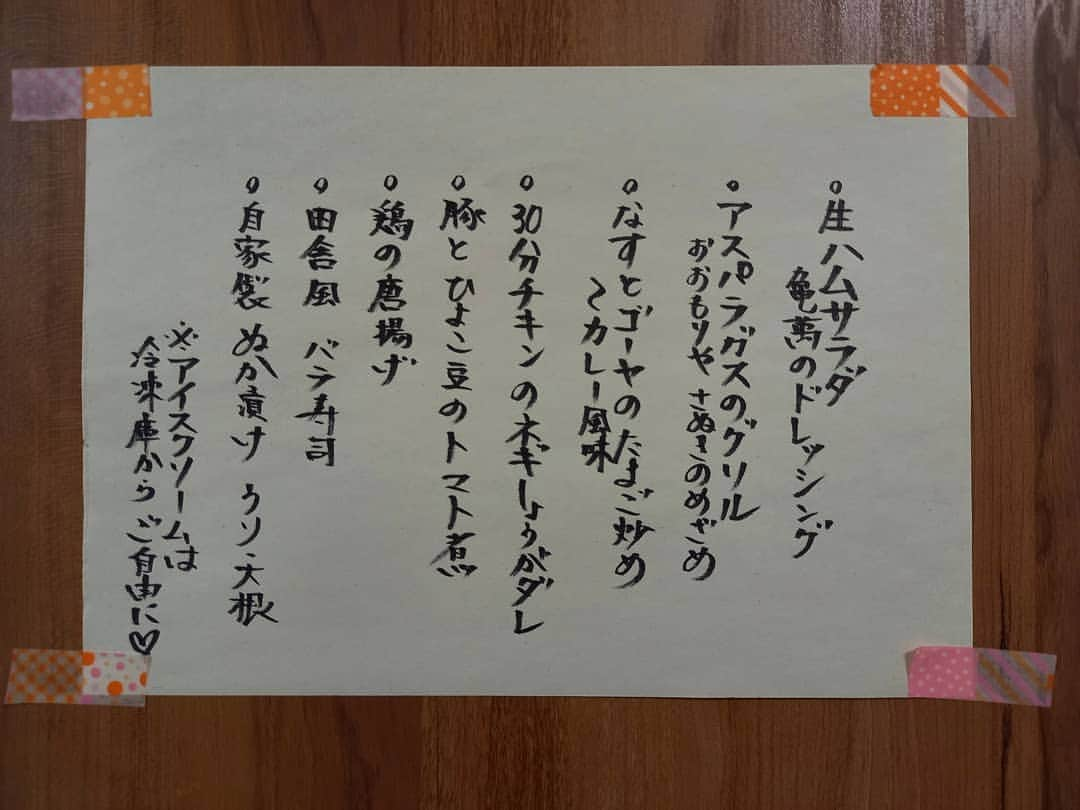 ○生ハムサラダ
亀萬のドレッシング
○アスパラグスのグリル
おおもりや さぬきのめざめ
○なすとゴーヤのたまご炒め
〜カレー風味
○30分チキンのネギしょうがダレ
○豚とひよこ豆のトマト煮
○鶏の唐揚げ
○田舎風 バラ寿司
○自家製 ぬか漬け うり・大根
※アイスクリームは
冷凍庫からご自由に♡